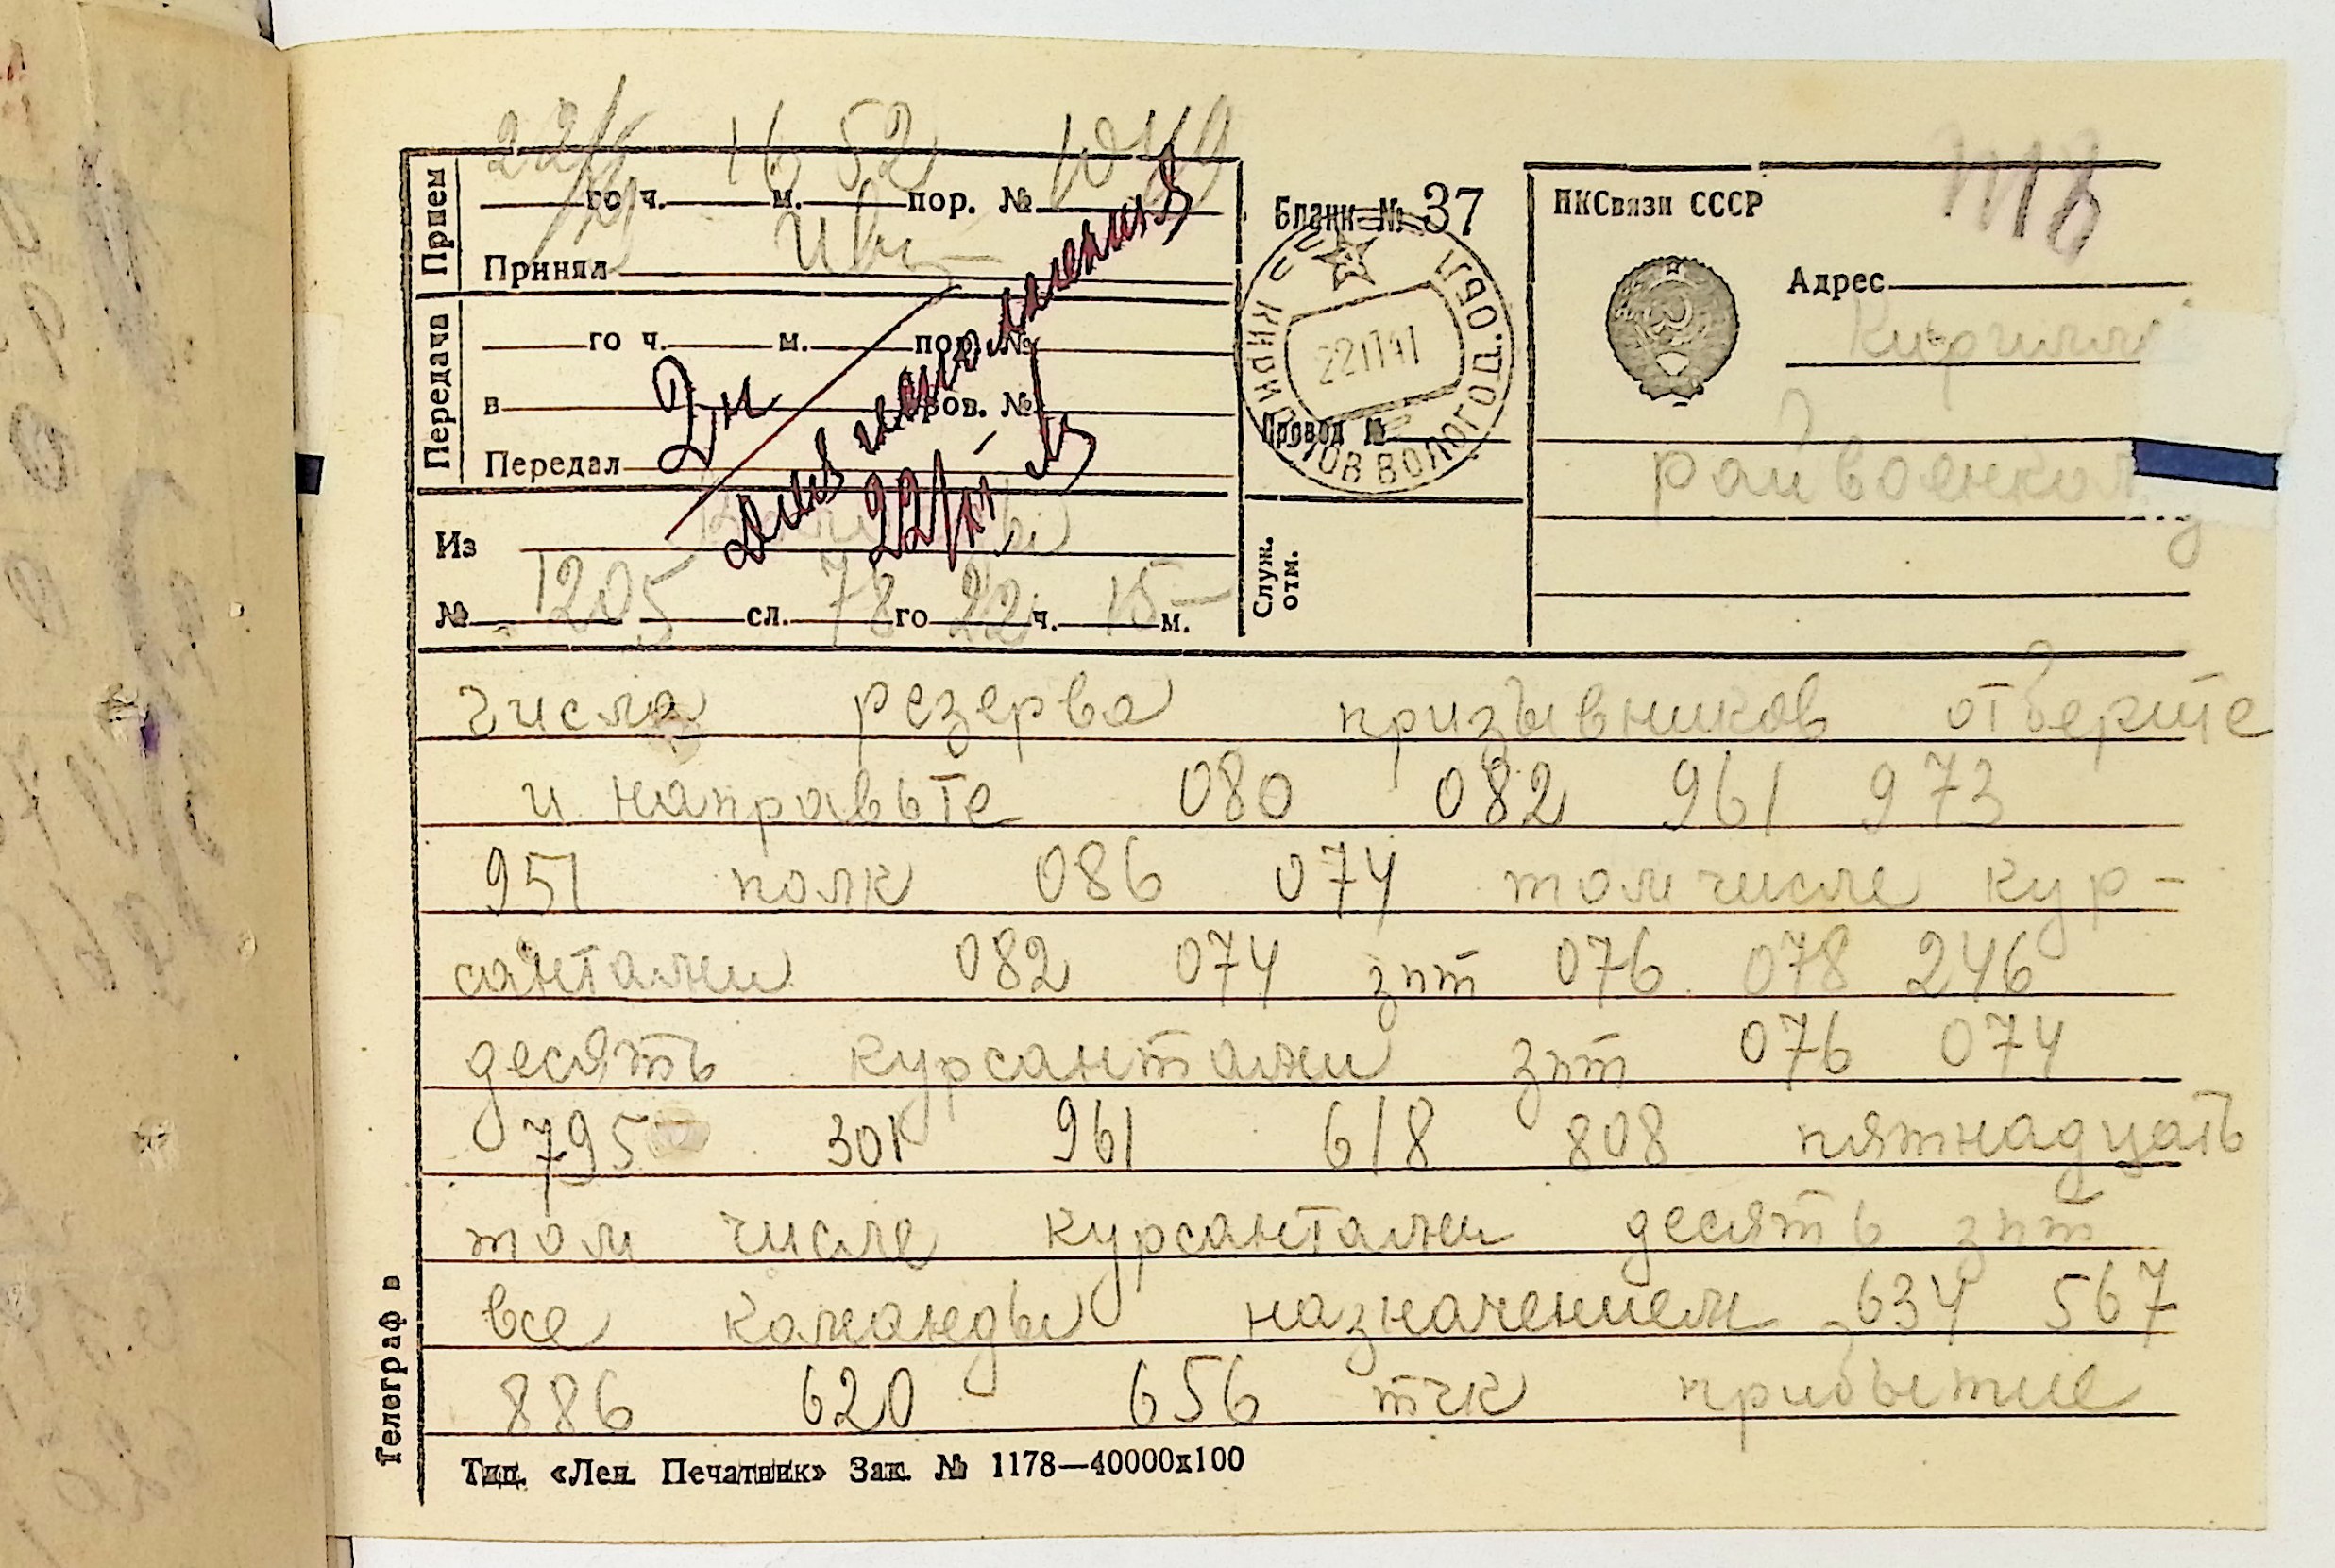 22/VI 16 52
Прием
го ч. м. пор. №
Принял
Передача
го ч. м. пор. №
в пров. №
Передал
22/VI
Из
№ 1205 сл. 78 го 22 ч. 15 м.
Бланк № 37
КИРИЛЛОВ ВОЛОГОД. ОБЛ.
Провод №
Служ. отм.
НКСвязи СССР
Адрес
Кирилл
райвоенком
числа резерва призывников отберите
и направьте 080 082 961 973
951 полк 086 074 том числе кур-
сантами 082 074 зпт 076 078 246
десять курсантами зпт 076 074
795 301 961 618 808 пятнадцать
том числе курсантами десять зпт
все команды назначением 634 567
886 620 656 тчк прибытие
Телеграф в
Тип. «Лен. Печатник» Зак. № 1178—40000х100